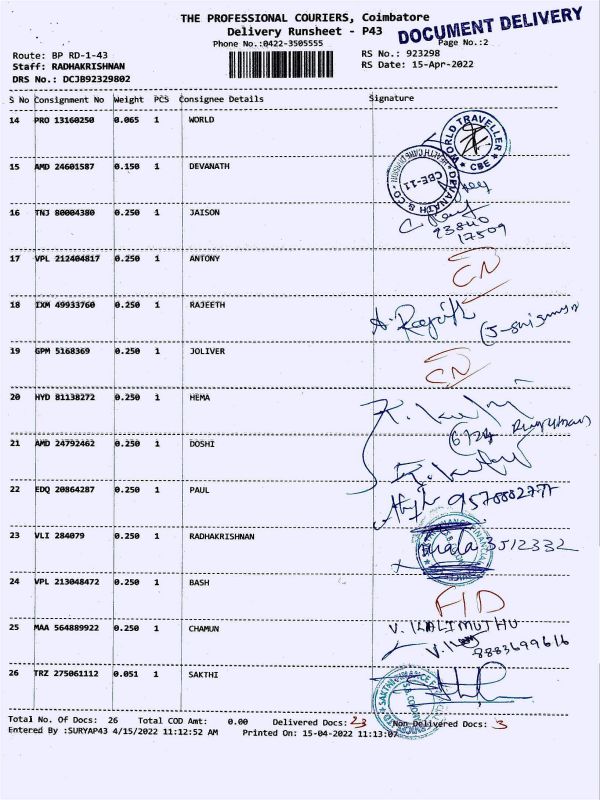 THE PROFESSIONAL COURIERS, Coimbatore
DOCUMENT DELIVERY
Delivery Runsheet - P43
Phone No.:0422-3505555
Page No.:2
Route: BP RD-1-43
RS No.: 923298
Staff: RADHAKRISHNAN
RS Date: 15-Apr-2022
DRS No.: DCJB92329802
S No Consignment No Weight PCS Consignee Details Signature
14 PRO 13160250 0.065 1 WORLD
WORLD TRAVELLER * CBE *
15 AMD 24601587 0.150 1 DEVANATH
DEVANATH & CO HEALTH CARE DIVISION CBE-11
16 TNJ 80004380 0.250 1 JAISON
93840
17509
17 VPL 212404817 0.250 1 ANTONY CN
18 IXM 49933760 0.250 1 RAJEETH
19 GPM 5168369 0.250 1 JOLIVER CN
20 HYD 81138272 0.250 1 HEMA
21 AMD 24792462 0.250 1 DOSHI
22 EDQ 20864287 0.250 1 PAUL
23 VLI 284079 0.250 1 RADHAKRISHNAN 3512332
24 VPL 213048472 0.250 1 BASH
25 MAA 564889922 0.250 1 CHAMUN V. KALIMUTHU
8883699616
26 TRZ 275061112 0.051 1 SAKTHI
Total No. Of Docs: 26 Total COD Amt: 0.00 Delivered Docs: 23 Non Delivered Docs: 3
Entered By :SURYAP43 4/15/2022 11:12:52 AM Printed On: 15-04-2022 11:13:07